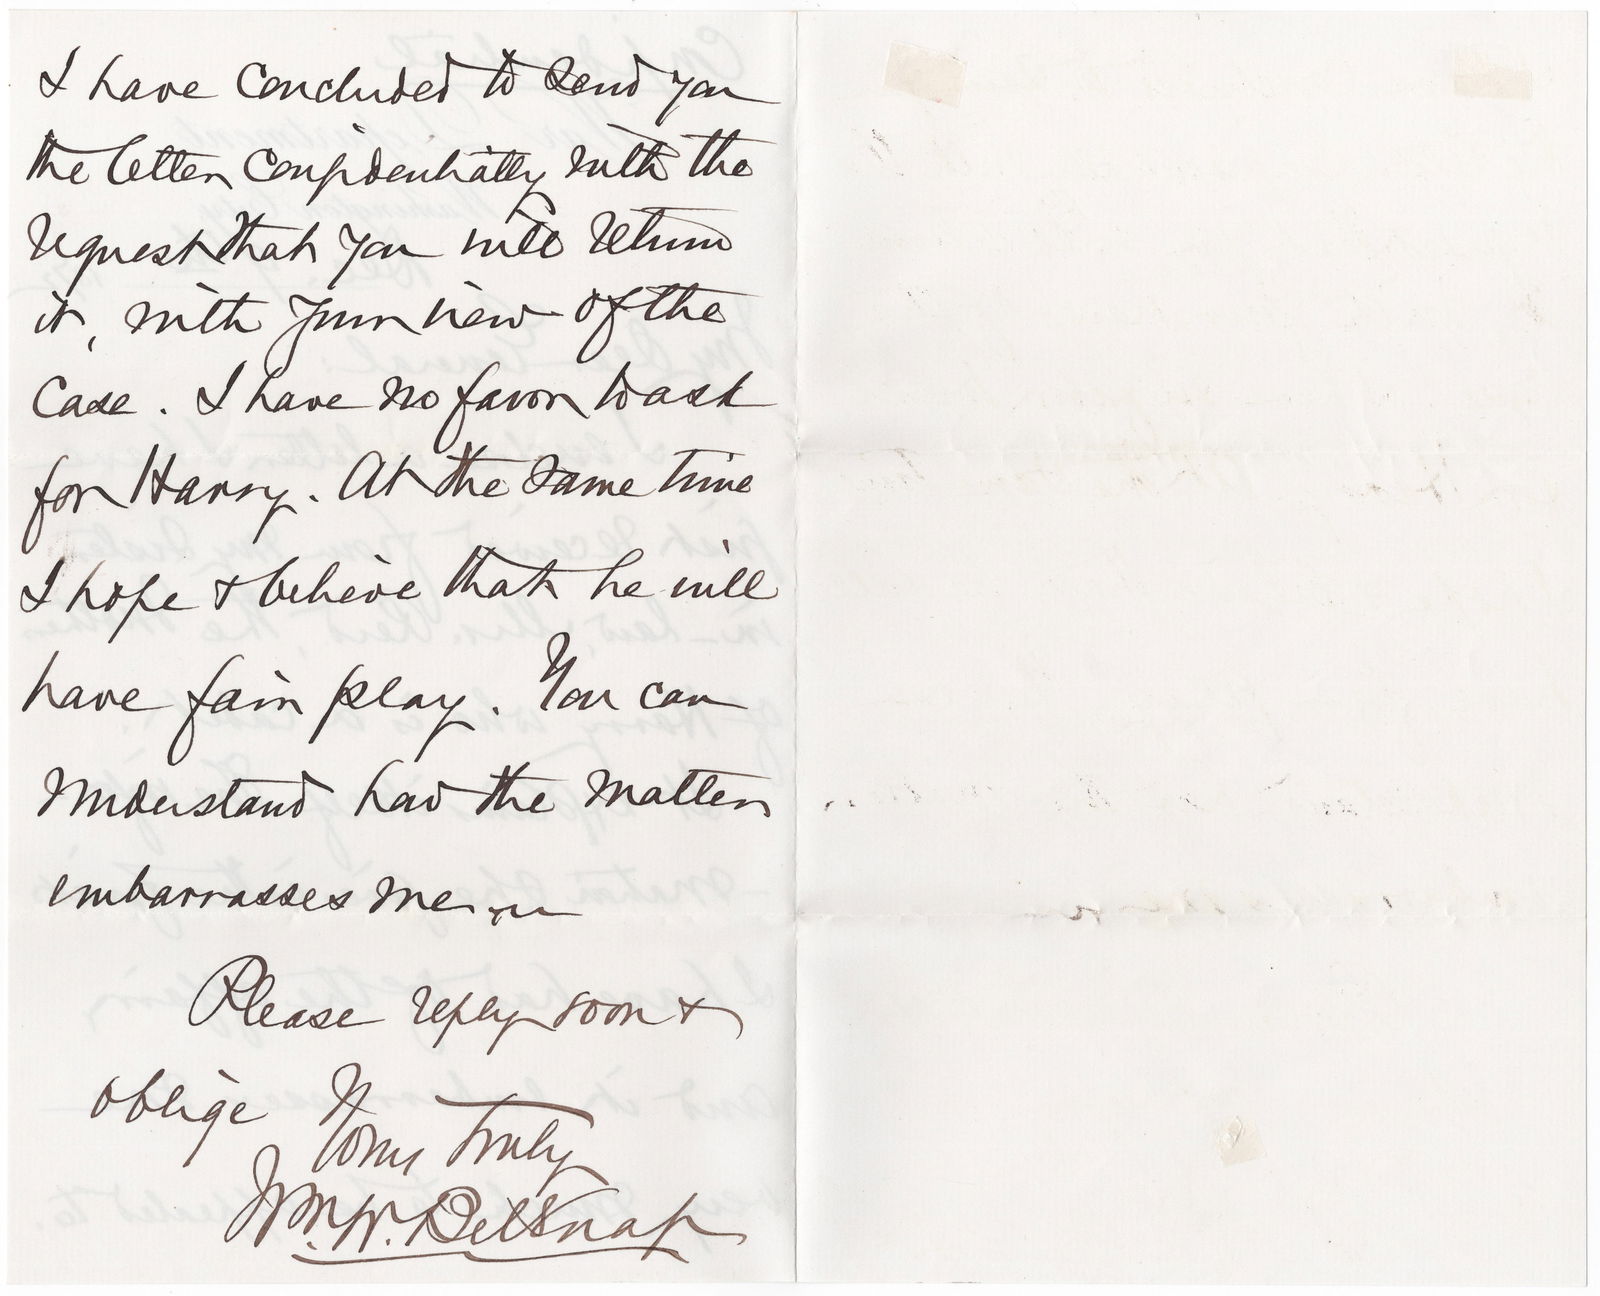 I have concluded to send you
the letter confidentially with the
request that you will return
it, with your view of the
case. I have no favor to ask
for Harry. At the same time
I hope & believe that he will
have fair play. You can
understand how the matter
embarrasses me.
Please reply soon &
oblige
Yours truly
Wm. W. Belknap